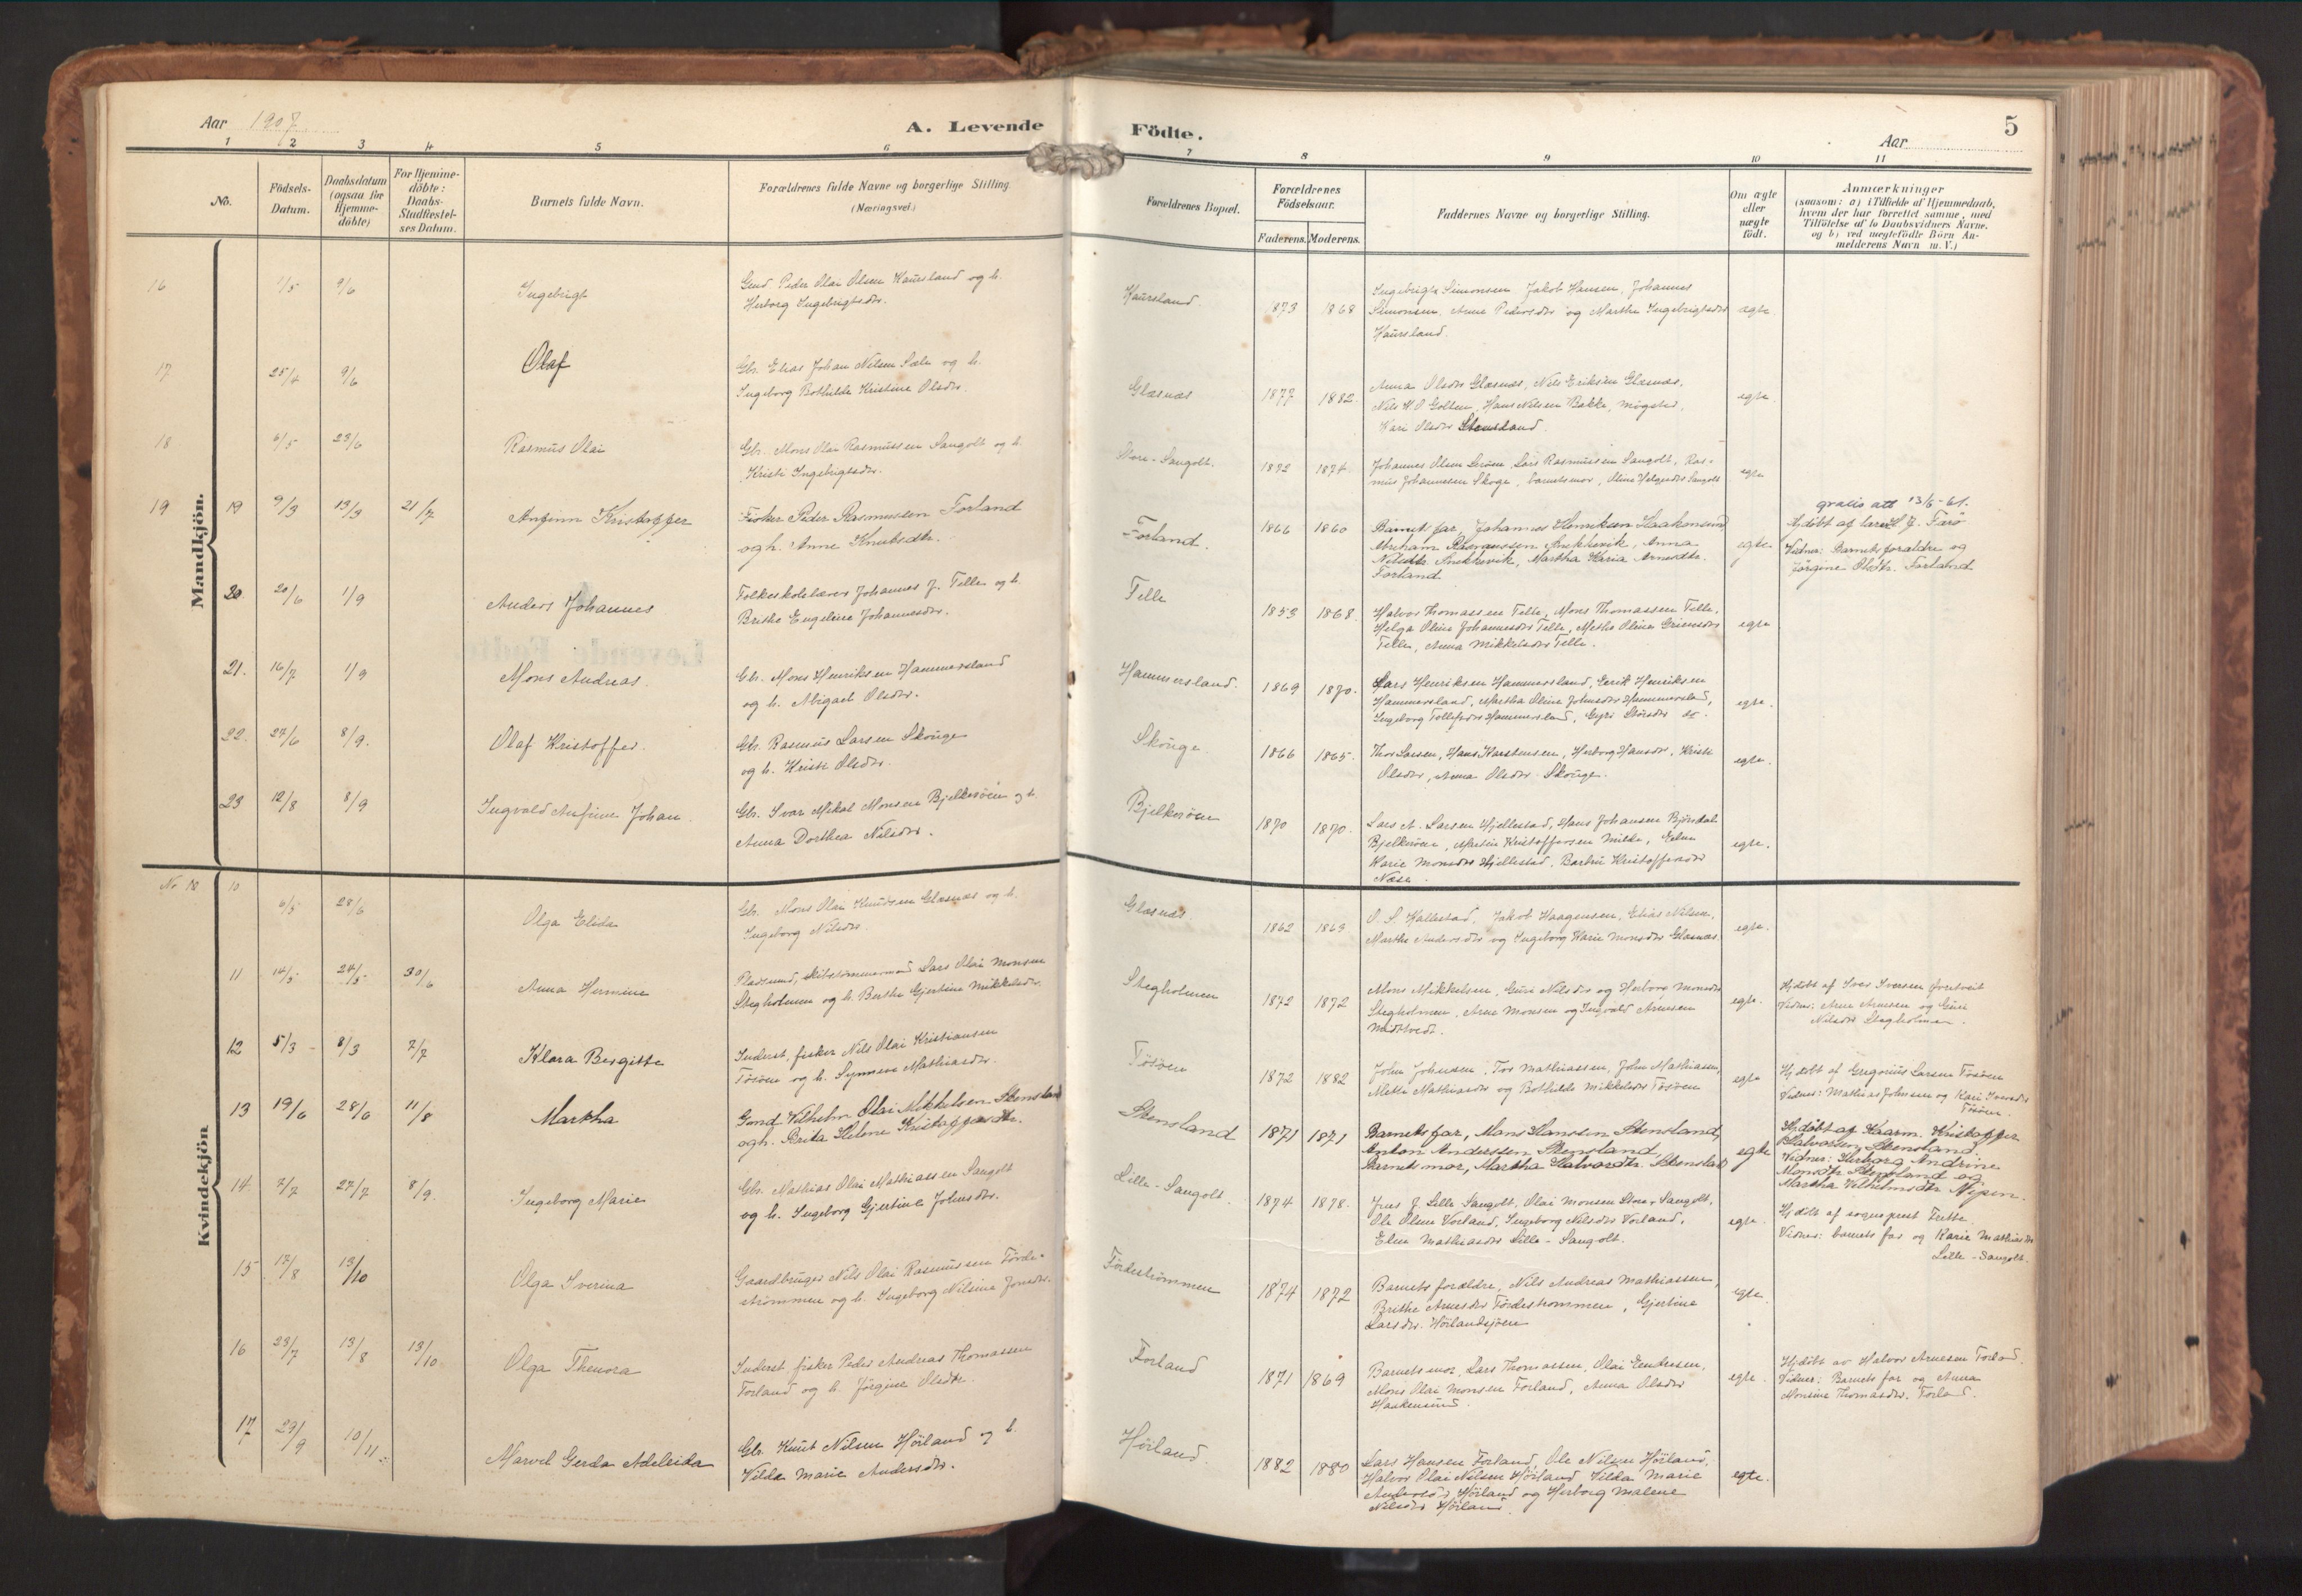 Aar 1907
A. Levende
Födte.
5
Aar
1 2 3 4 5 6 7 8 9 10 11
No.
Födsels-
Datum.
Daabsdatum
(ogsaa for
Hjemme-
döbte)
For Hjemme-
döbte:
Daabs-
Stadfæstel-
ses Datum.
Barnets fulde Navn.
Forældrenes fulde Navne og borgerlige Stilling.
(Næringsvei.)
Forældrenes Bopæl.
Forældrenes
Födselsaar.
Faderens. Moderens.
Faddernes Navne og borgerlige Stilling.
Om ægte
eller
uægte
födt.
Anmærkninger
(saasom: a) i Tilfælde af Hjemmedaab,
hvem der har forrettet samme, med
Tilföielse af to Daabsvidners Navne.
og b) ved uægtefödte Börn An-
melderens Navn m. V.)
Mandkjön.
16 1/5 9/6 Ingebrigt
Peder Olai Olsen Haursland og h.
Herborg Ingebrigtsdtr.
Haursland. 1873 1868
Ingebrigt Simonsen, Jakob Hansen, Johannes
Simonsen, Anne Pedersdtr og Marthe Ingebrigtsdtr
Haursland.
ægte
17 9/6 Olaf
Gbr. Elias Johan Nilsen Sæle og h.
Ingeborg Bothilde Kristine Olsdtr.
Glæsnæs 1877 1882.
Anna Olsdtr Glæsnæs, Nils Eriksen Glæsnæs,
Nils H. O. Golten, Hans Nilsen Bakke, Møgster,
Kari Olsdtr Stensland.
egte
18 6/5 23/6 Rasmus Olai
Gbr. Mons Olai Rasmussen Sangolt og h.
Kristi Ingebrigtsdtr.
Store-Sangolt. 1872 1874
Johannes Olsen Lerøen, Lars Rasmussen Sangolt, Ras-
mus Johannesen Skoge, barnets mor, Oline Helgesdtr Sangolt
egte
19 19 9/3 13/3 21/7 Anfinn Kristoffer
Fisker Peder Rasmussen Forland
og h. Anne Knutsdtr.
Forland. 1866 1860
Barnets far, Johannes Henriksen Haakonsund
Abraham Rasmussen Snekkevik, Anna
Nilsdtr. Snekkevik, Martha Karia Arnesdtr.
Forland
egte
gratis att 13/6-61.
Hj.døbt af lærer H. J. Farø
Vidner: Barnets forældre og
Jörgine Olsdtr. Forland
20 20/6 1/9 Anders Johannes
Folkeskolelærer Johannes J. Telle og h.
Brithe Engeline Johannesdtr.
Telle 1853 1868.
Halvor Thomassen Telle, Mons Thomassen Telle,
Helga Oline Johannesdtr Telle, Methe Oline Grimsdtr
Telle, Anna Mikkelsdtr Telle.
egte
21. 16/7 1/9 Mons Andreas.
Gbr. Mons Henriksen Hammersland
og h. Abigael Olsdtr.
Hammersland. 1869 1870.
Lars Henriksen Hammersland, Eerik Henriksen
Hammersland, Martha Oline Johnsdtr Hammersland,
Ingeborg Tollefsdtr Hammersland, Guri
egte.
22. 27/6 8/9. Olaf Kristoffer.
Gbr. Rasmus Larsen Skouge
og h. Kristi Olsdtr.
Skouge. 1866 1865.
Thor Larsen, Hans Karstensen, Herborg Hansdtr, Kristi
Olsdtr, Anna Olsdtr Skouge.
egte.
23 12/8 8/9 Ingvald Anfinn Johan.
Gbr. Ivar Mikal Monsen Bjelkerøen og h.
Anna Dorthea Nilsdtr.
Bjelkerøen 1870 1870.
Lars A. Larsen Hjellestad, Hans Johansen Bjørndal
Bjelkerøen, Martin Kristoffersen Milde, Eline
Marie Monsdtr Hjellestad, Barbru Kristoffersdtr
Næse.
egte.
Kvindekjön.
Nr 10 10 6/5 28/6 Olga Elida
Gbr. Mons Olai Knudsen Glæsnæs og h.
Ingeborg Nilsdtr.
Glæsnæs. 1862 1863
O. S. Kallestad, Jakob Haagensen, Elias Nilsen,
Marthe Andersdtr og Ingeborg Karie Monsdtr Glæsnæs.
egte.
11 14/5 24/5 30/6 Anna Hermine
Pladsmand, skibstømmermand Lars Olai Monsen
Stegholmen og h. Berthe Gjertine Mikkelsdtr.
Stegholmen 1872 1872
Mons Mikkelsen, Guri Nilsdtr og Herborg Monsdtr
Stegholmen, Arne Monsen og Ingvald Arnesen
Midttvedt.
egte.
Hj.døbt af Iver Iversen Tveitveit
Vidner: Arne Arnesen og Guri
Nilsdtr Stegholmen.
12 5/3 8/3 7/7 Klara Bergitte
Inderst, fisker Nils Olai Kristiansen
Tøsøen og h. Synneve Mathiasdtr.
Tøsøen 1872 1882
John Johnsen, Tor Mathiassen, John Mathiassen,
Mette Mathiasdtr og Bothilde Mikkelsdtr Tøsøen
egte
Hj.døbt af Gregorius Larsen Tøsøen
Vidner: Mathias Johnsen og Kari Iversdtr
Tøsøen.
13 19/6 28/6 11/8 Martha
Gmd Vilhelm Olai Mikkelsen Stensland
og h. Brita Helene Kristoffersdtr.
Stensland 1871 1871
Barnets far, Mons Hansen Stensland,
Anton Andersen Stensland,
Barnets mor, Martha Halvorsdtr. Stensland
egte
Hj.døbt af Kaarm. Kristoffer
Halvorsen Stensland.
Vidner: Herborg Andrine
Monsdtr Stensland og
Martha Vilhelmsdtr. Nypen.
14 7/7 27/7 8/9. Ingeborg Marie
Gbr. Mathias Olai Mathiassen Sangolt
og h. Ingeborg Gjertine Johnsdtr.
Lille-Sangolt. 1874 1878.
Jens J. Lille Sangolt, Olai Monsen Store-Sangolt,
Ole Olsen Vorland, Ingeborg Nilsdtr Vorland,
Elen Mathiasdtr Lille-Sangolt.
egte.
Hj.døbt af sogneprest Frette.
Vidner: barnets far og Karie Mathiasdtr
Lille-Sangolt.
15 17/8 13/10 Olga Iverina
Gaardbruger Nils Olai Rasmussen Førde-
strømmen og h. Ingeborg Nilsine Jonsdtr.
Førdestrømmen 1874 1872
Barnets forældre, Nils Andreas Mathiassen,
Brithe Arnesdtr Førdestrømmen, Gjertine
Larsdtr. Hørlandsjøen
egte.
16 23/7 13/8 13/10 Olga Thenora
Inderst fisker Peder Andreas Thomassen
Forland og h. Jørgine Olsdtr.
Forland 1871 1869
Barnets mor, Lars Thomassen, Olai Eendresen,
Mons Olai Monsen Forland, Anna Olsdtr
Haakonsund.
egte.
Hj.døbt av Halvor Arnesen Forland.
Vidner: Barnets far og Anna
Monsine Thomasdtr. Forland.
17 29/9 10/11 Marvel Gerda Adeleida
Gbr. Knut Nilsen Hørland og h.
Vilda Marie Andersdtr.
Hørland. 1882 1880
Lars Hansen Forland, Ole Nilsen Hørland,
Halvor Olai Nilsen Hørland, Vilda Marie
Andersdtr Hørland og Herborg Malene
Nilsdtr Hørland.
egte.